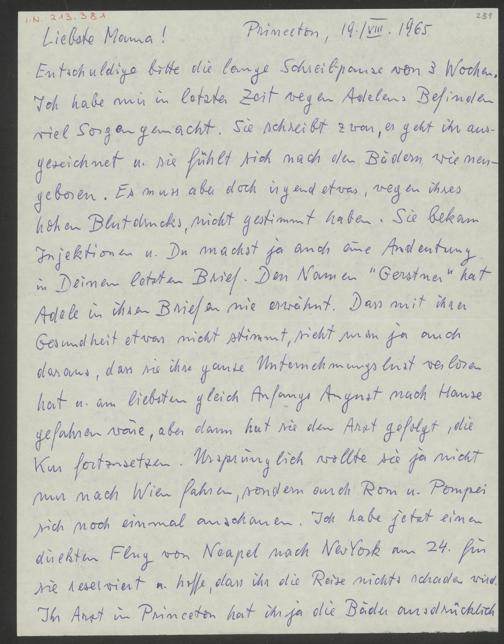 I.N. 213.381
239
Liebste Mama! Princeton, 19./VIII. 1965
Entschuldige bitte die lange Schreibpause von 3 Wochen.
Ich habe mir in letzter Zeit wegen Adelens Befinden
viel Sorgen gemacht. Sie schreibt zwar, es geht ihr aus-
gezeichnet u. sie fühlt sich nach den Bädern wie neu-
geboren. Es muss aber doch irgend etwas, wegen ihres
hohen Blutdrucks, nicht gestimmt haben. Sie bekam
Injektionen u. Du machst ja auch eine Andeutung
in Deinem letzten Brief. Den Namen "Gerstner" hat
Adele in ihren Briefen nie erwähnt. Dass mit ihrer
Gesundheit etwas nicht stimmt, sieht man ja auch
daraus, dass sie ihre ganze Unternehmungslust verloren
hat u. am liebsten gleich Anfangs August nach Hause
gefahren wäre, aber dann hat sie dem Arzt gefolgt, die
Kur fortzusetzen. Ursprünglich wollte sie ja nicht
nur nach Wien fahren, sondern auch Rom u. Pompei
sich noch einmal anschauen. Ich habe jetzt einen
direkten Flug von Neapel nach NewYork am 24. für
sie reserviert u. hoffe, dass ihr die Reise nichts schaden wird.
Ihr Arzt in Princeton hat ihr ja die Bäder ausdrücklich